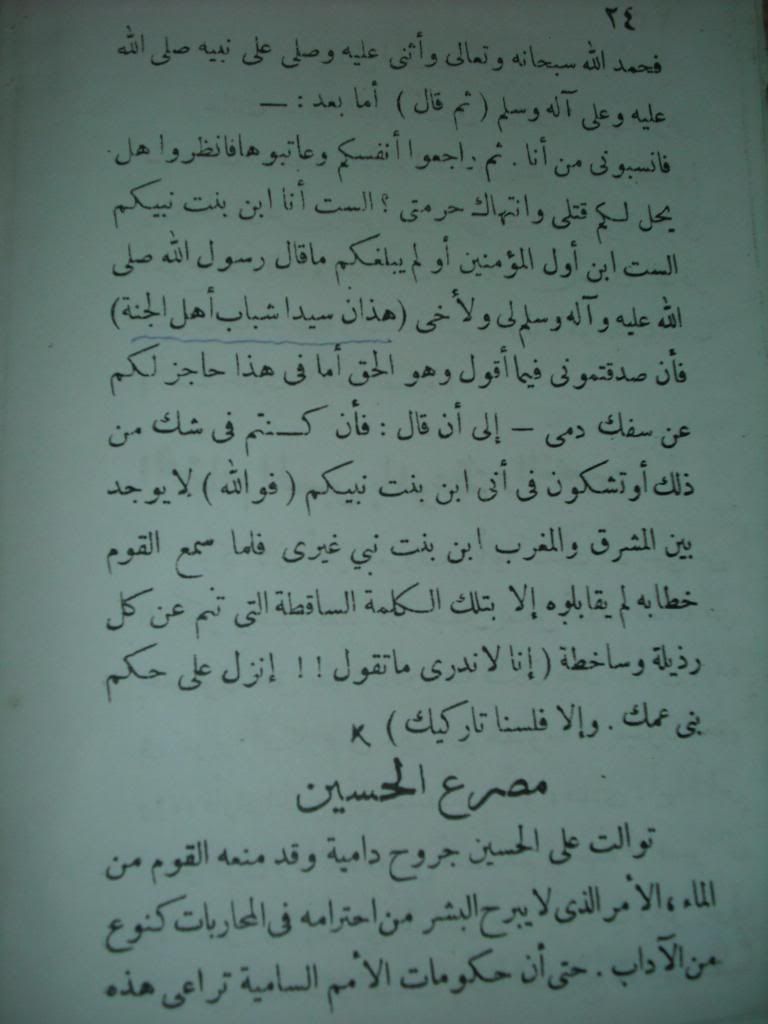 ٢٤
فحمد الله سبحانه وتعالى وأثنى عليه وصلى على نبيه صلى الله
عليه وعلى آله وسلم ( ثم قال ) أما بعد : —
فانسبونى من أنا . ثم راجعوا أنفسكم وعاتبوها فانظروا هل
يحل لكم قتلى وانتهاك حرمتى ؟ الست أنا ابن بنت نبيكم
الست ابن أول المؤمنين أو لم يبلغكم ماقال رسول الله صلى
الله عليه وآله وسلم لى ولأخى ( هذان سيدا شباب أهل الجنة )
فأن صدقتمونى فيما أقول وهو الحق أما فى هذا حاجز لكم
عن سفك دمى — إلى أن قال : فأن كنتم فى شك من
ذلك أو تشكون فى أنى ابن بنت نبيكم ( فوالله ) لا يوجد
بين المشرق والمغرب ابن بنت نبي غيرى فلما سمع القوم
خطابه لم يقابلوه إلا بتلك الكلمة الساقطة التى تنم عن كل
رذيلة وساخطة ( إنا لاندرى ماتقول ! ! إنزل على حكم
بنى عمك . وإلا فلسنا تاركيك )
مصرع الحسين
توالت على الحسين جروح دامية وقد منعه القوم من
الماء ، الأمر الذى لا يبرح البشر من احترامه فى المحاربات كنوع
من الآداب . حتى أن حكومات الأمم السامية تراعى هذه